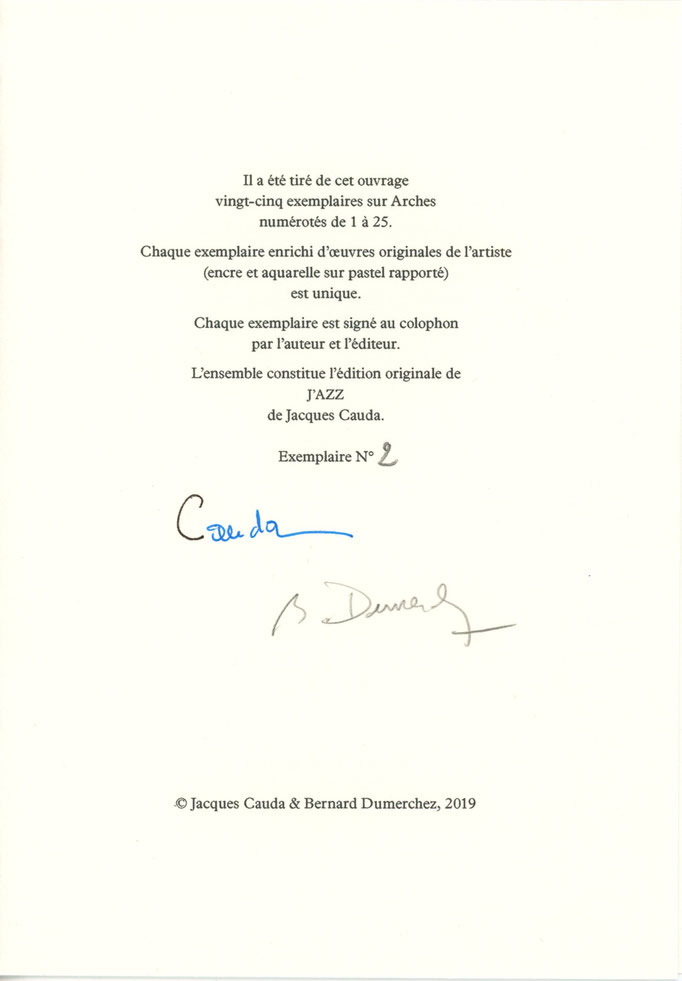 Il a été tiré de cet ouvrage
vingt-cinq exemplaires sur Arches
numérotés de 1 à 25.
Chaque exemplaire enrichi d’œuvres originales de l’artiste
(encre et aquarelle sur pastel rapporté)
est unique.
Chaque exemplaire est signé au colophon
par l’auteur et l’éditeur.
L’ensemble constitue l’édition originale de
J’AZZ
de Jacques Cauda.
Exemplaire N° 2
Cauda
B. Dumerch
© Jacques Cauda & Bernard Dumerchez, 2019